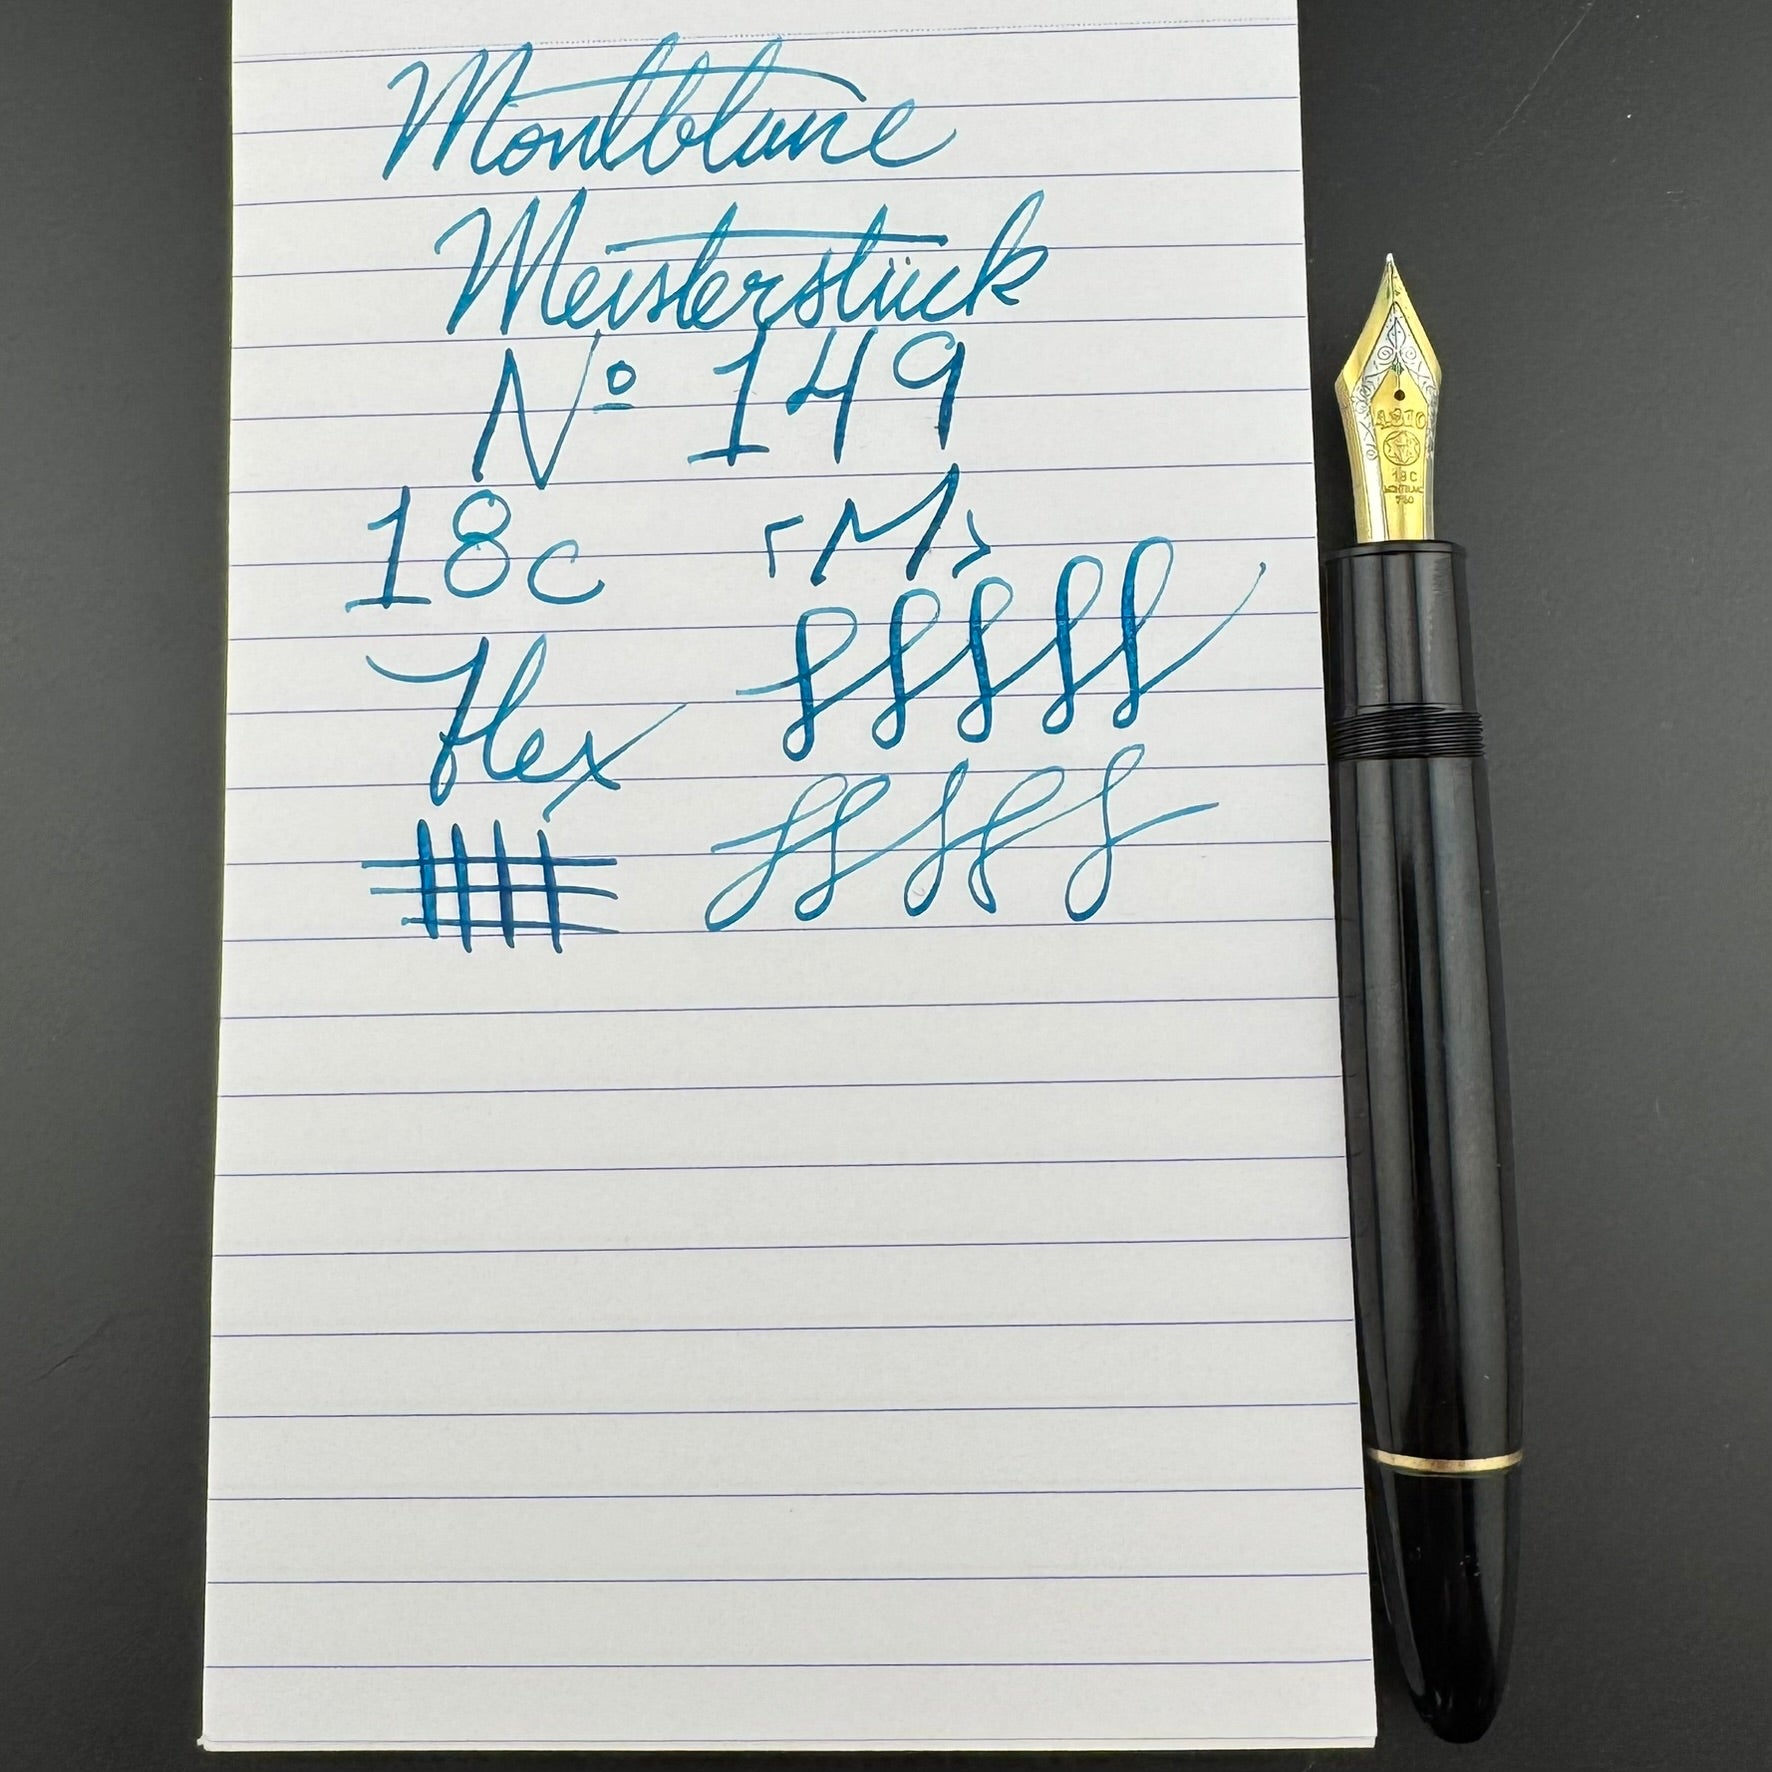 Montblanc
Meisterstück
Nº 149
18c <M>
Flex
4810
18C
MONTBLANC
750